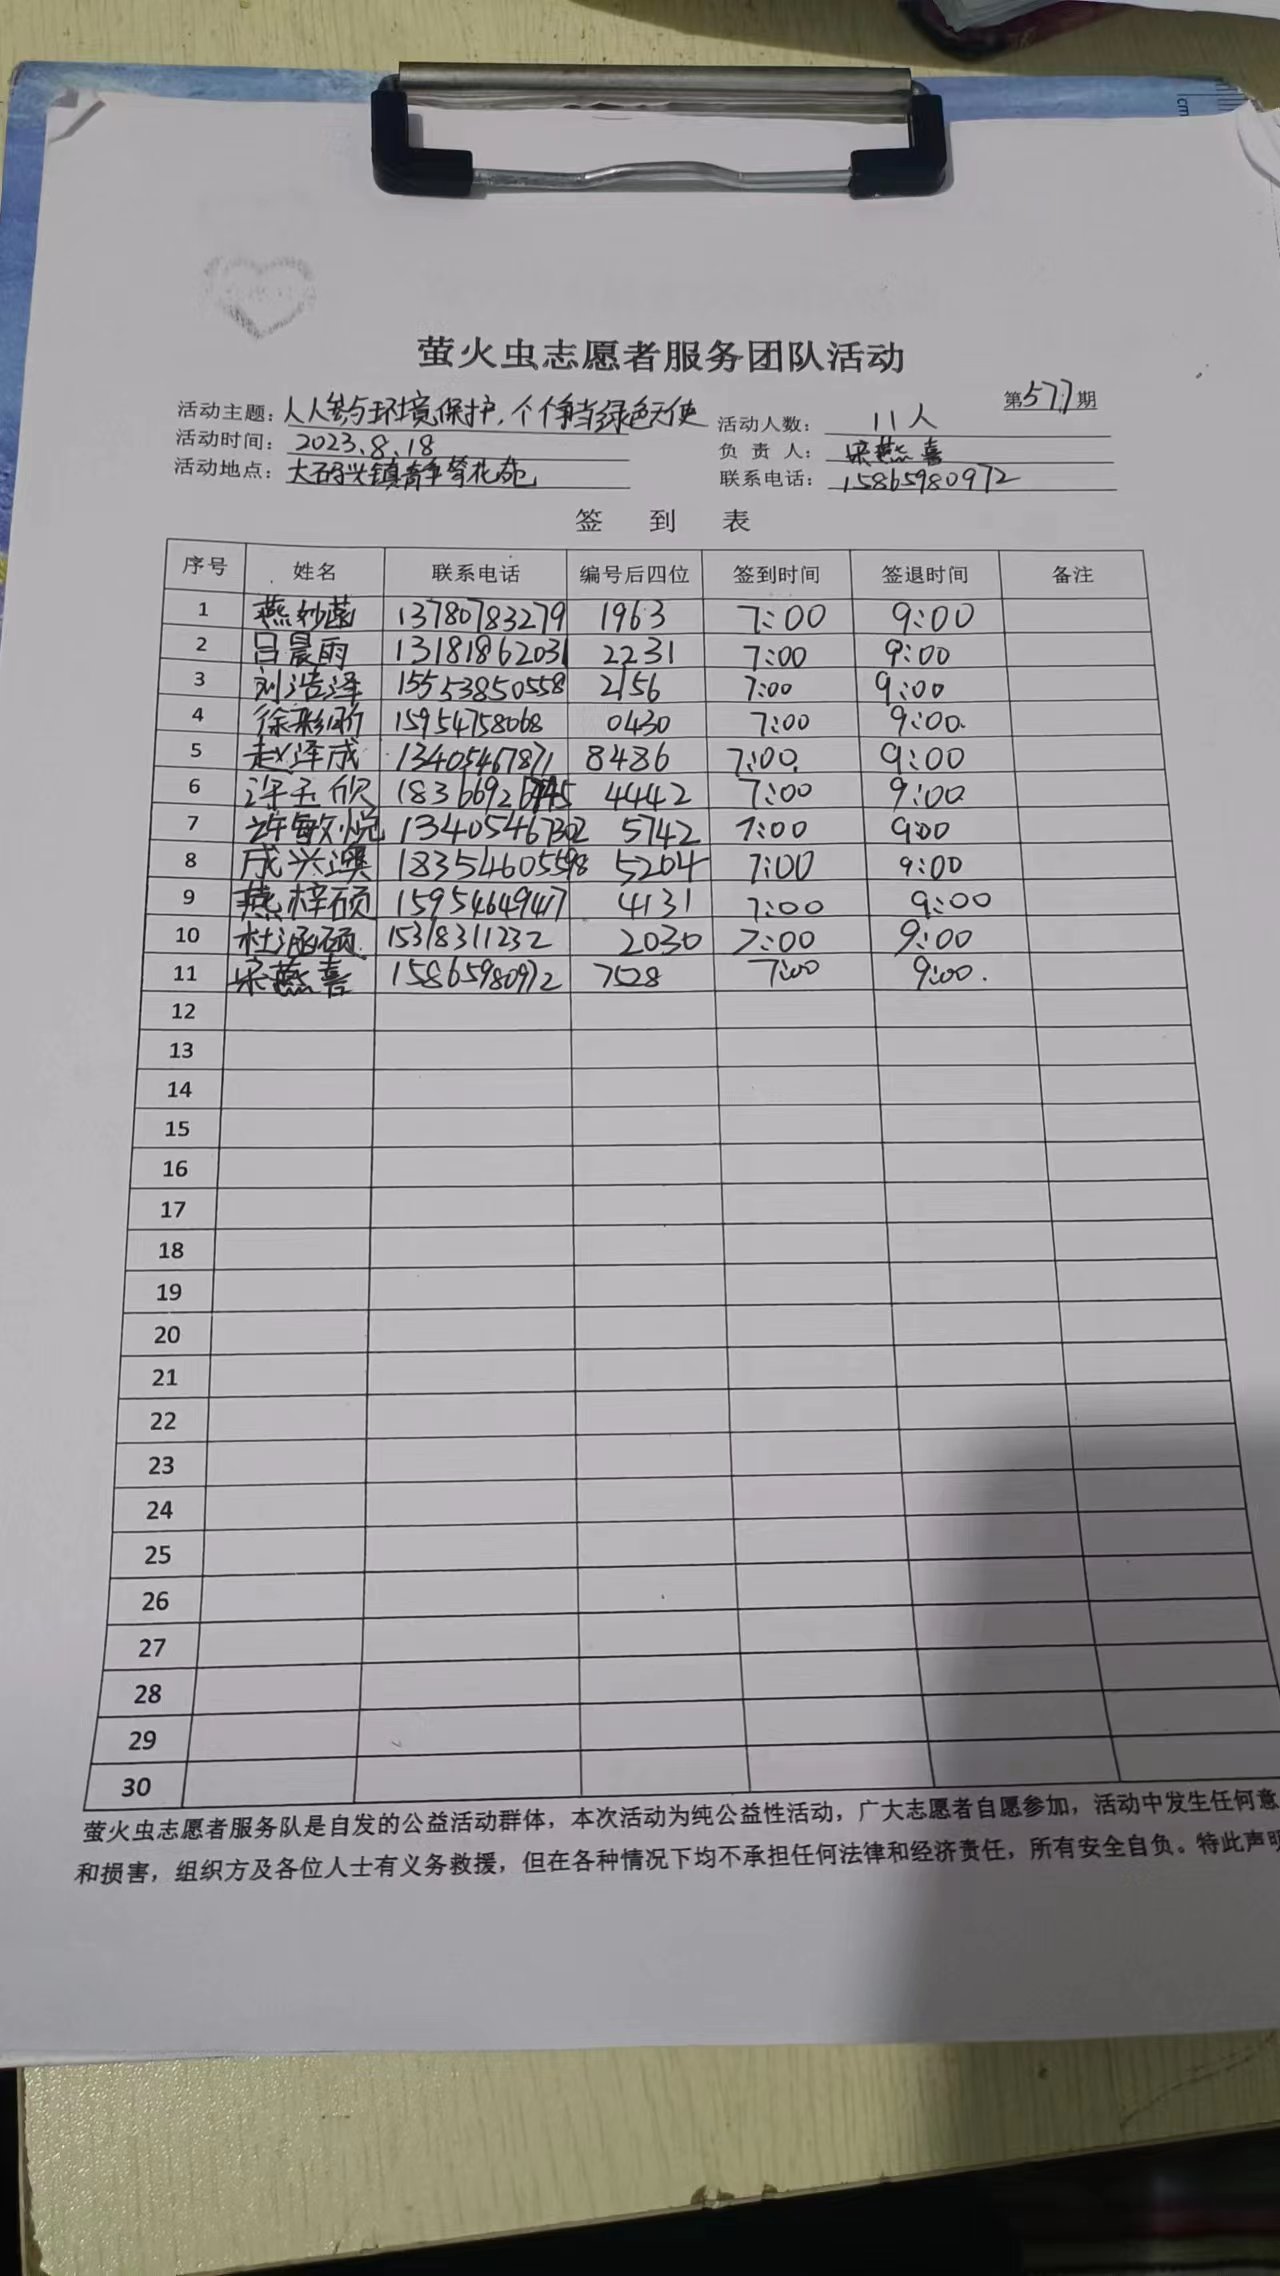 cm
萤火虫志愿者服务团队活动
第577期
活动主题：人人参与环境保护，个个争当绿色天使 活动人数： 11人
活动时间：2023.8.18 负 责 人： 宋燕喜
活动地点：大码头镇 花苑 联系电话：15865980972
签 到 表
序号 姓名 联系电话 编号后四位 签到时间 签退时间 备注
1 燕妙菡 13780783279 1963 7:00 9:00
2 吕晨雨 13181862031 2231 7:00 9:00
3 刘浩泽 15553850558 2156 7:00 9:00
4 徐彩昕 15954758068 0430 7:00 9:00
5 赵泽成 13405467871 8486 7:00 9:00
6 许玉欣 4442 7:00 9:00
7 许敏悦 13405467302 5742 7:00 9:00
8 成兴澳 18354605598 5204 7:00 9:00
9 燕梓硕 15954649417 4131 7:00 9:00
10 杜涵硕 15318311232 2030 7:00 9:00
11 宋燕喜 15865980972 7528 7:00 9:00
12
13
14
15
16
17
18
19
20
21
22
23
24
25
26
27
28
29
30
萤火虫志愿者服务队是自发的公益活动群体，本次活动为纯公益性活动，广大志愿者自愿参加，活动中发生任何意
和损害，组织方及各位人士有义务救援，但在各种情况下均不承担任何法律和经济责任，所有安全自负。特此声明